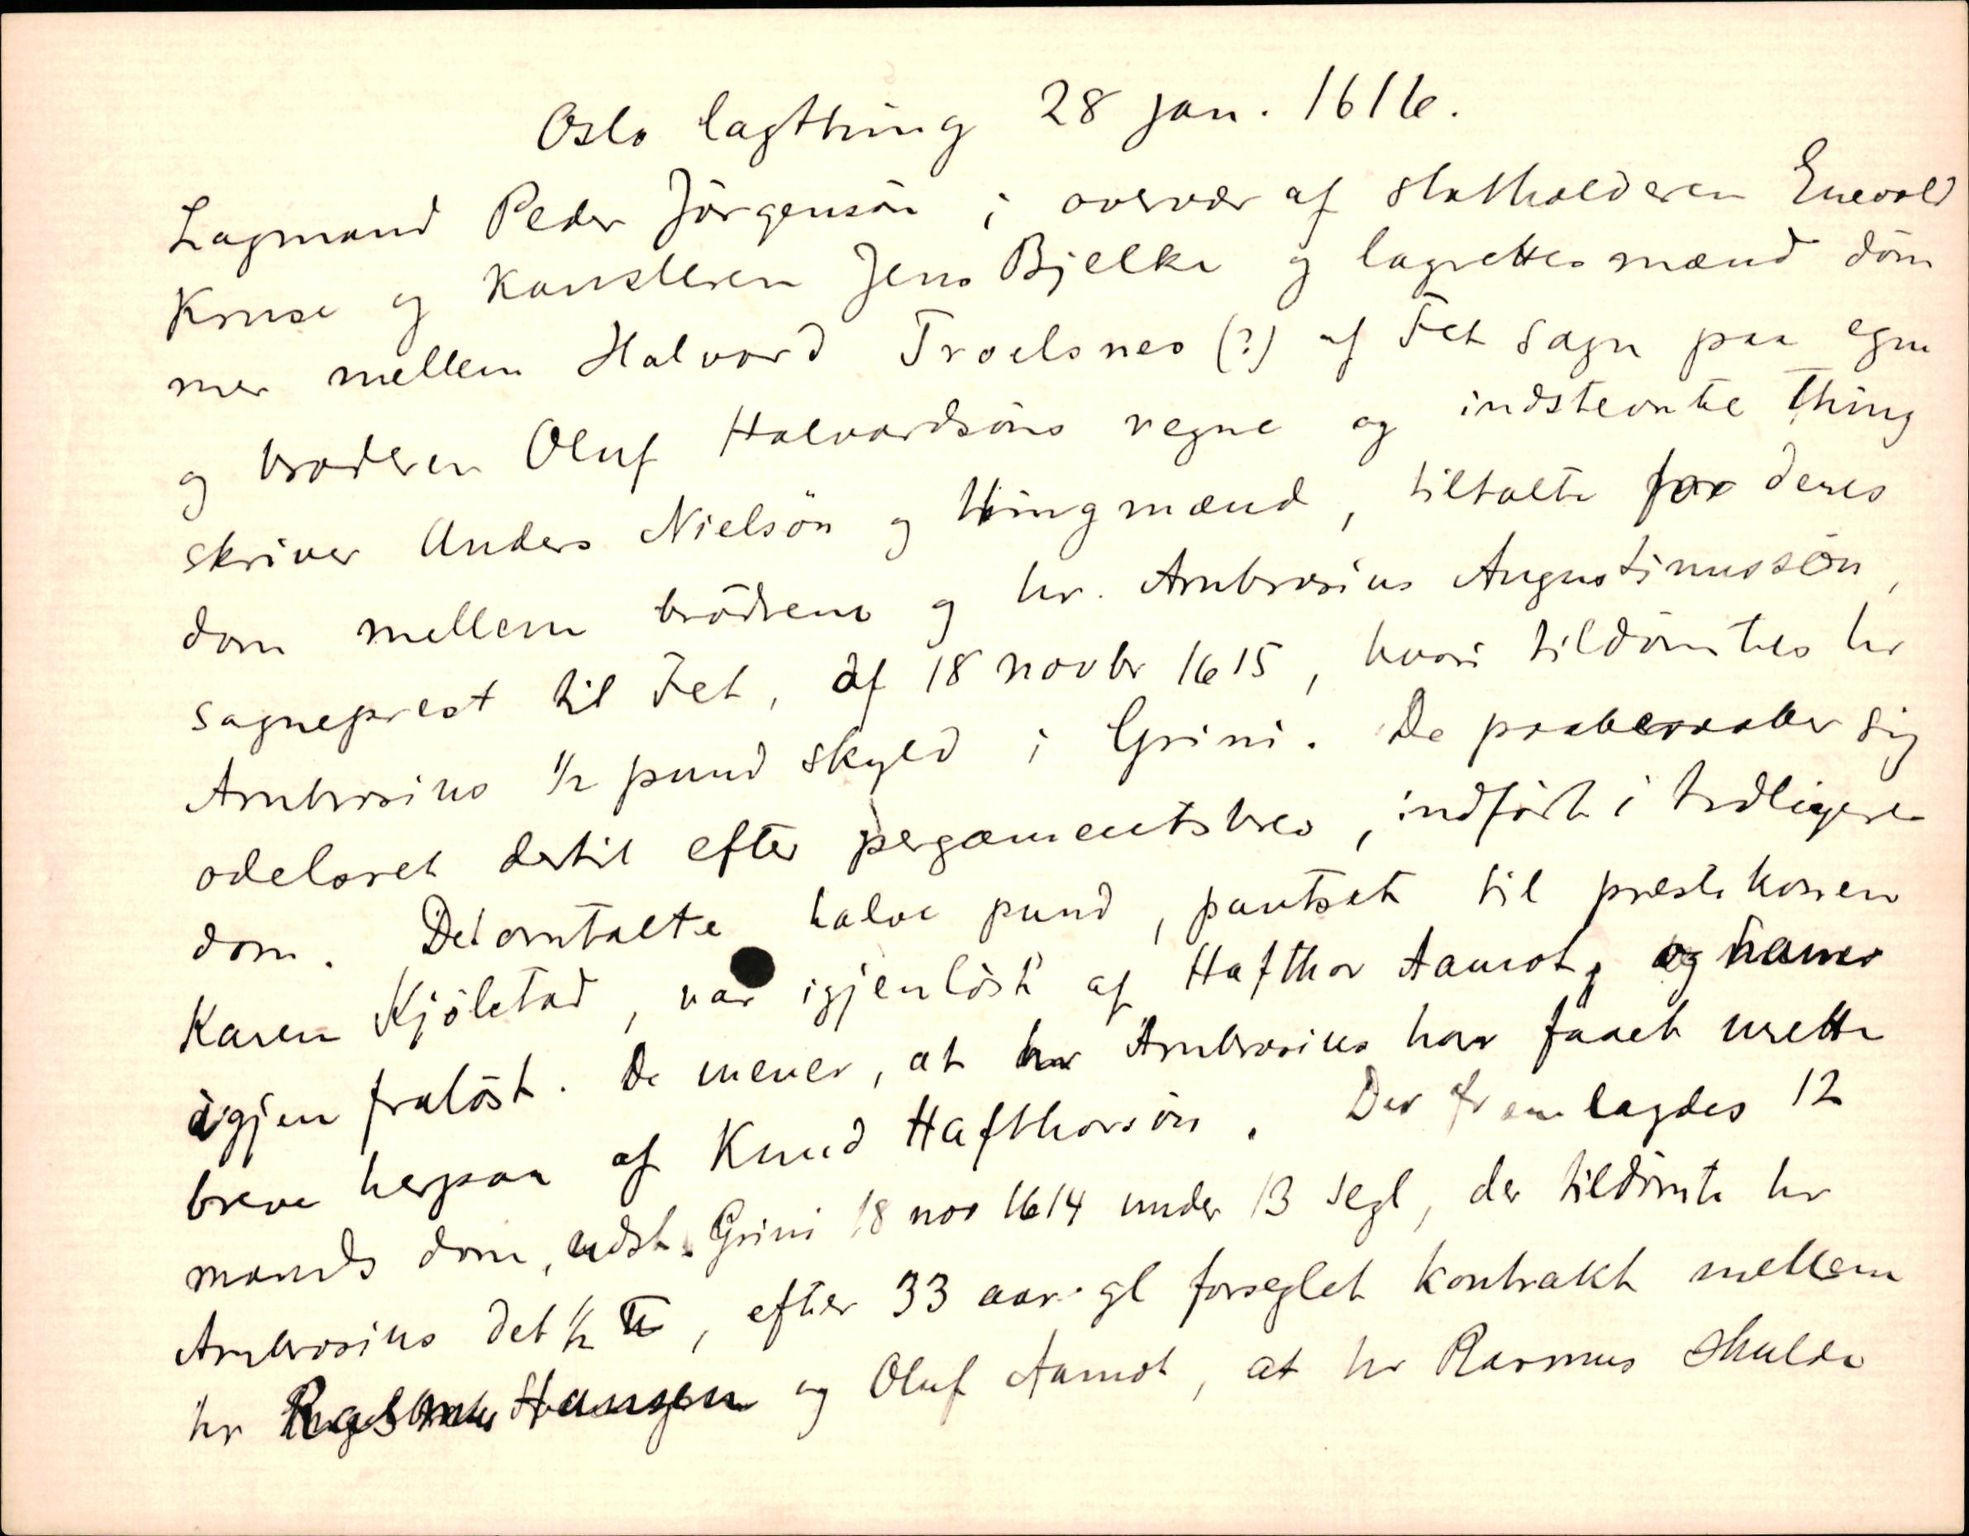 Oslo lagthing 28 jan. 1616.
Lagmand Peder Jörgensön i overvær af statholderen Enevold
Kruse og kansleren Jens Bjelke og lagrettesmænd döm
mer mellem Halvord Troelsnes (?) af Fet sagn paa egne
og broderen Oluf Halvordsöns vegne og indstevnte thing
skriver Anders Nielsön og thingmænd, tiltalte for deres
dom mellem brödrene og hr. Ambrosius Augustinussön,
sagneprest til Fet, af 18 novbr 1615, hvori tildömtes hr
Ambrosius 1/2 pund skyld i Grini. De paaberaaber sig
odelsret dertil efter pergamentsbrev, indfört i tidligere
dom. Det omtalte halve pund, pantsat til prestekonen
Karen Kjölstad, var igjenlöst af Hafthor Aamot, og hames
igjen fralöst. De mener, at hr Ambrosius har faaet urette
breve herpaa af Knud Hafthorsön. Der fremlagdes 12
mands dom, udst. Grini 18 nov 1614 under 13 segl, der tildömte hr
Ambrosius det 1/2 ℔, efter 33 aar gl forseglet kontrakt mellem
hr Rasmus Hansen og Oluf Aamot, at hr Rasmus skulde